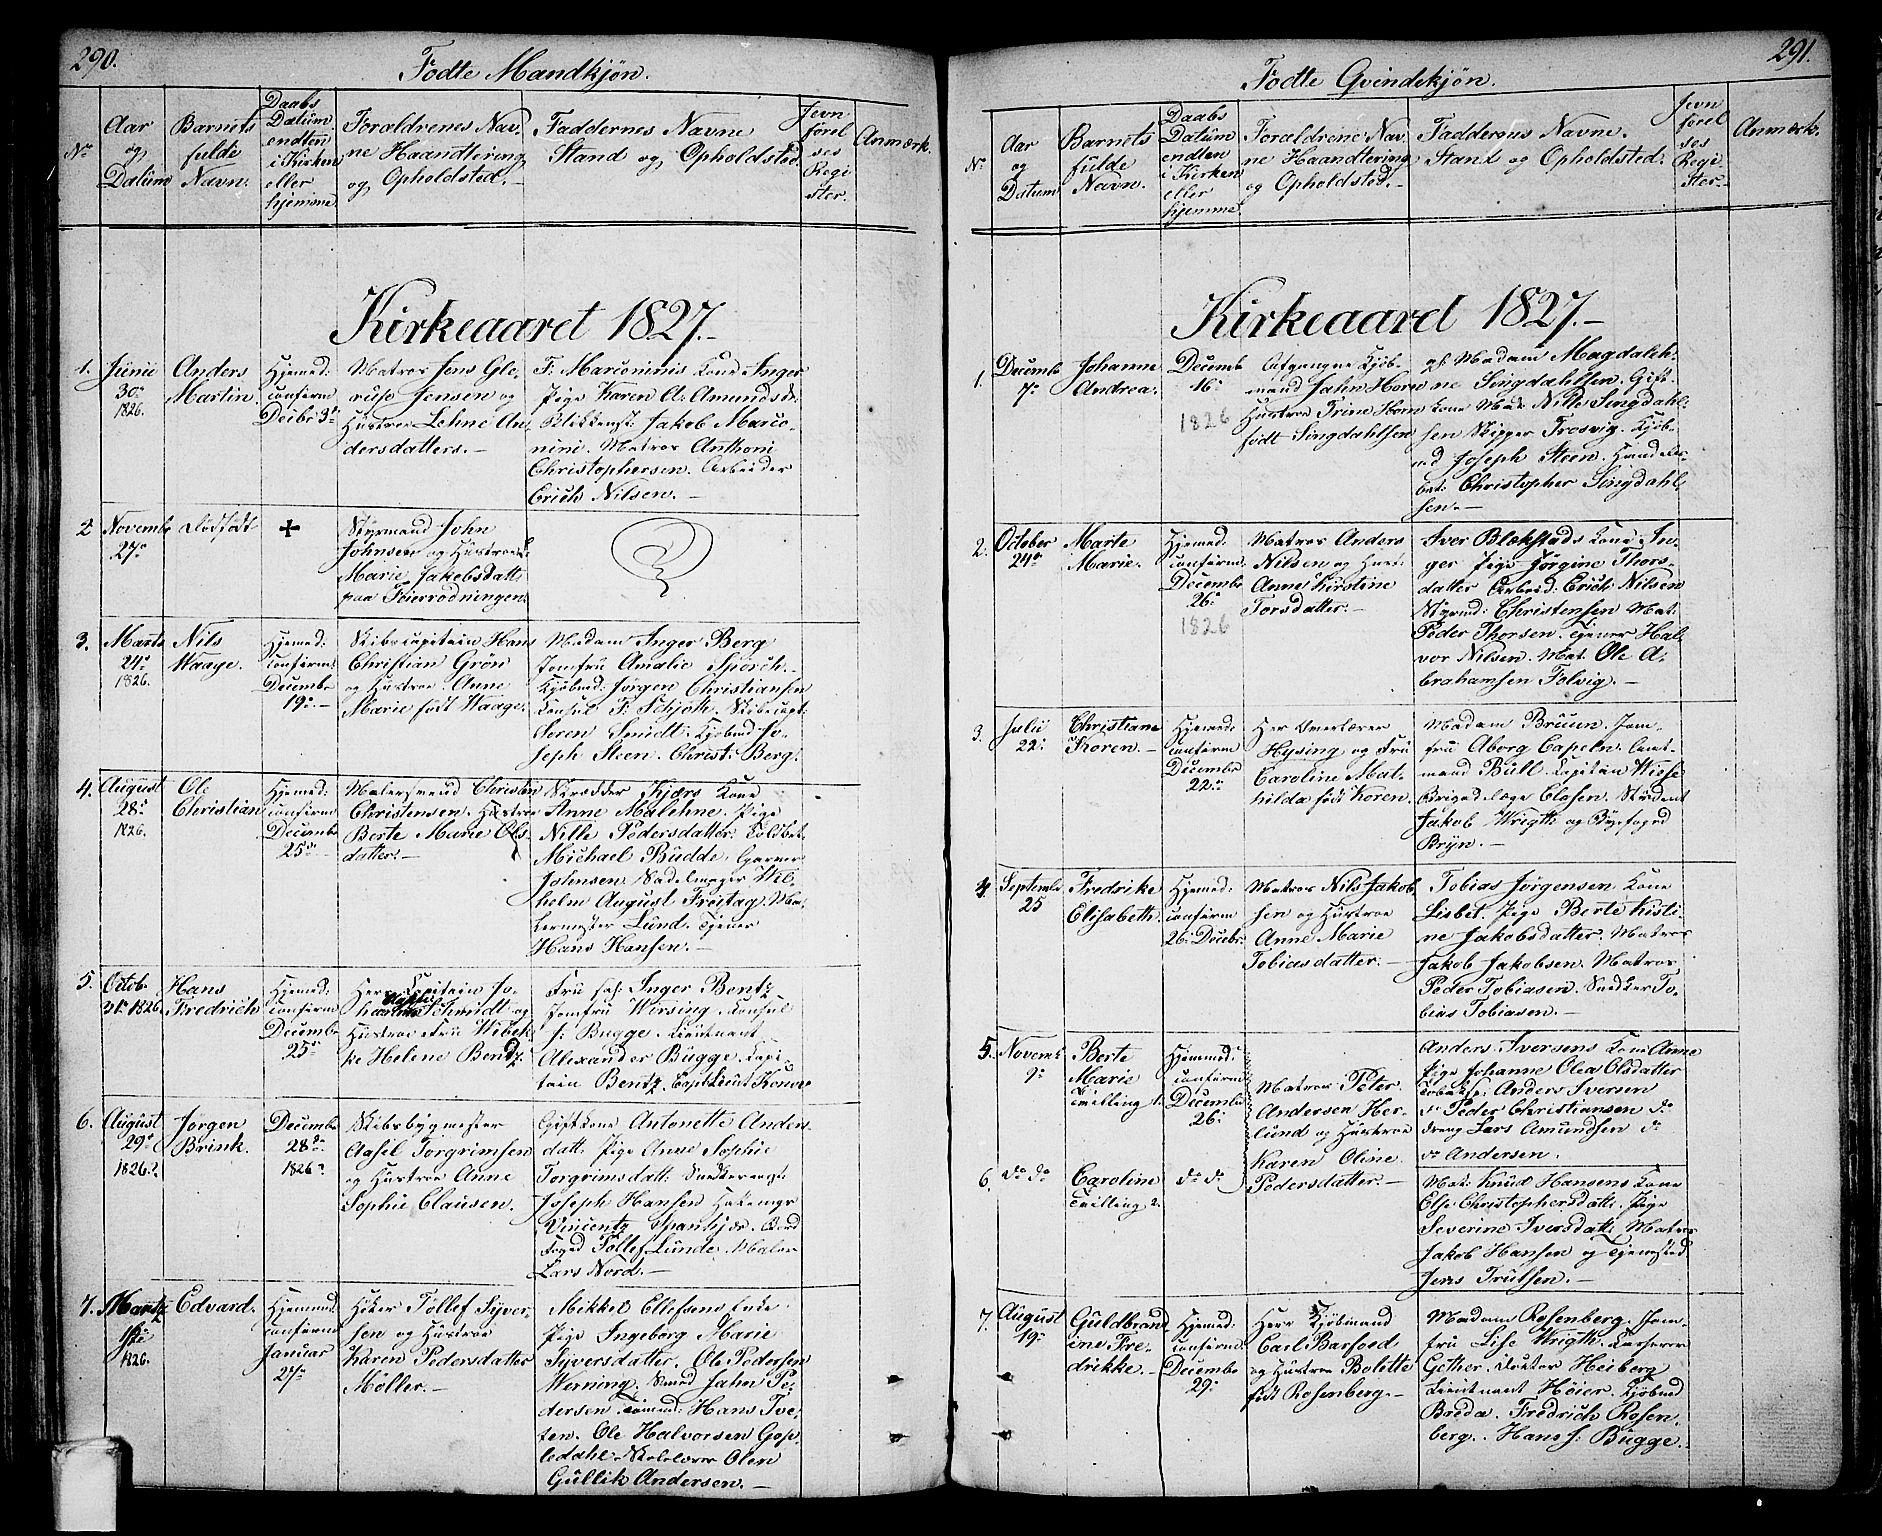 290.
Fødte Mandkjön.
No
Aar
og
Datum
Barnets
fulde
Navn.
Daabs
Datum
endten
i Kirken
eller
hjemme
Foraldrenes Nav-
ne Haandtering
og Opholdsted.
Faddernes Navne
Stand og Opholdsted.
Jevn
förel
ses
Regi
ster.
Anmærk.
Kirkeaaret 1827.
1.
Junii
30te
1826.
Anders
Martin.
Hjemed:
confirm
Decbr 3de
Matros Jens Gle-
ruse Jensen og
Hustroe Lehne An-
dersdatters.
F: Marconinis Kone Inger
Pige Karen A: Amundsd:
Blikkenst: Jakob Marco-
nini. Matros Anthoni
Christophersen. Arbeider
Erich Nilsen.
2
Novembr
27de
Dödfödt
+
Styrmand John
Johnsen og Hustroe
Marie Jakobsdatt:
paa Feierrödningen.
3.
Marts
24de
1826.
Nils
Waage.
Hjemed:
confirm:
Decembr
19de
Skibscapitain Hans
Christian Grön
og Hustroe Anne
Marie född Waage.
Madam Inger Berg
Jomfru Amalie Sporch.
Kjöbmd: Jörgen Christiansen
Consul F: Schjöth. Skibscapt:
Sören Smidt. Kjöbmd Jo-
seph Steen. Christ: Berg.
4.
August
28de
1826.
Ole
Christian
Hjemed:
confirm:
Decembr
25de
Matersmand Christen
Christensen. Hustroe
Berte Marie Ols-
datter.
Skrædder Kjærs Kone
Anne Malehne. Pige
Nille Pedersdatter. Toldbet
Michael Budde. Garver
Johnsen. Sadelmager Wil-
helm August Freitag. Ma-
lermester Lund. Tjener
Hans Hansen.
5.
Octob.
31te 1826
Hans
Fredrich
Hjemed:
confirm
Decembr
25de
Herr Capitain Jo-
hannes Schmidt og
Hustroe Fru Wibek-
ke Helene Bentz.
Fru sal: Inger Bentz
Jomfru Wirsing. Consul
J: Bugge. Lieutnant
Alexander Bugge. Capi-
tain Bentz.
6.
August
29de
1826.
Jörgen
Brink.
Decembr
28de
1826
Skibsbygmester
Aasel Torgrimsen
og Hustroe Anne
Sophie Clausen.
Giftkone Antonette Anders
datt. Pige Anne Sophie
Torgrimsdatt: Snedkersvend
Joseph Hansen
Vincentz Spankjær. Bord
Foged Tollef Lunde. Maler
Lars Nord.
7.
Marts
1826.
Edvard.
Hjemmed:
confirm
Januar
27de
Höker Tollef Syver-
sen og Hustroe
Karen Pedersdatter
Möller.
Mikkel Ellefsens Enke
Pige Ingeborg Marie
Syversdatter. Ole Pedersen
Werning. Smed Jahn Pe-
dersen. Tömmd: Hans Tve-
ten. Ole Halvorsen Gos-
ledahl. Skolelærer Olen
Gullik Andersen.
291.
Födte Qvindekjön.
No
Aar
og
Datum
Barnets
fulde
Navn.
Daabs
Datum
endten
i Kirken
eller
hjemme
Foraldrene Nav-
ne Haandtering
og Opholdsted.
Faddernes Navne.
Stand og Opholdsted.
Jevn
förel
ses
Regi
ster.
Anmærk.
Kirkeaaret 1827.
1.
Decembr
7de
Johanne
Andrea.
Decemb
16de
1826
Afgangne Kjöb-
mand Jahn Horn
Hustroe Trine Horn
född Singdahlsen
Madam Magdaleh-
ne Singdahlsen. Gift-
kone Mad: Nille Singdahl-
sen Skipper Trosvig. Kjöb-
md Joseph Steen. Handels-
bet: Christopher Singdahl-
sen.
2.
October
24de
Marte
Marie.
Hjemed:
confirm:
Decembr
26de
1826
Matros Anders
Nilsen og Hust:
Anne Kirstine
Torsdatter.
Iver Blækstads Kone In-
ger Pige Jörgine Thors-
datter Arbeid: Erich Nilsen
Styrmd: Christensen Mat.
Peder Thorsen. Tjener Hal-
vor Nilsen. Mat. Ole A-
brahamsen Folvig.
3.
Julii
22de
Christiane
Koren.
Hjemed:
confirm
Decembr
22de
Her Overlærer
Hysing og Fru
Caroline Mat-
hilda född Koren.
Madam Bruun. Jom-
fru Aborg Capeln. Amt-
mand Bull. Capitain Wiese
Brigadelæge Clasen. Student
Jakob Wrigth og Byefoged
Bryn.
4.
Septembr
25
Fredrike
Elisabeth.
Hjemed:
confirm
26de Decbr
Matros Nils Jakob-
sen og Hustroe
Anne Marie
Tobiasdatter.
Tobias Jörgensen Kone
Lisbet. Pige Berte Kisti-
ne Jakobsdatter. Matros
Jakob Jakobsen. Matros
Peder Tobiasen. Snedker To-
bias Tobiasen.
5.
Novemb:
9de
Berte
Marie
Tvilling 1.
Hjemmed:
confirm
Decembr
26de
Matros Peter
Andersen Her-
lund og Hustroe
Karen Oline
Pedersdatter.
Anders Iversens Kone Anne
Pige Johanne Olea Olsdatter
Anders Iversen
do Peder Christiansen do
dreng Lars Amundsen do
do Andersen.
6.
do do
Caroline
Tvilling 2.
do do
Mat: Knud Hansens Kone
Else Christophersdatt: Pige
Severine Iversdatt. Matros
Jakob Hansen og Tjenested
Jens Trulsen.
7.
August
19de
Guldbran-
ine Fre-
drikke.
Hjemed:
confirmed
Decembr
29de
Herr Kjöbmand
Carl Barfoed
og Hustroe Bolette
född Rosenberg.
Madam Rosenberg. Jom-
fru Lise Wrigth. Casserer
Gether. Doctor Heiberg
Lieutnant Höier. Kjöbmd
Breda. Fredrich Rosen
berg. Hans J: Bugge.